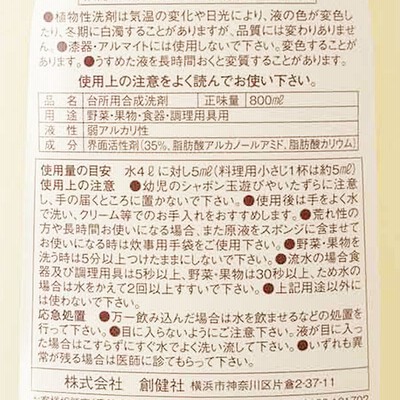 ●植物性洗剤は気温の変化や日光により、液の色が変色し
たり、冬期に白濁することがありますが、品質には変わりありませ
ん。●漆器・アルマイトには使用しないで下さい。変色することがあり
ます。●うすめた液を長時間おくと変質することがあります。
使用上の注意をよく読んでお使い下さい。
品名 台所用合成洗剤 正味量 800mℓ
用途 野菜・果物・食器・調理用具用
液性 弱アルカリ性
成分 界面活性剤(35%、脂肪酸アルカノールアミド、脂肪酸カリウム)
使用量の目安 水4ℓに対し5mℓ(料理用小さじ1杯は約5mℓ)
使用上の注意 ●幼児のシャボン玉遊びやいたずらに注意
し、手の届くところに置かないで下さい。●使用後は手をよく水
で洗い、クリーム等でのお手入れをおすすめします。●荒れ性の
方や長時間お使いになる場合、また原液をスポンジに含ませて
お使いになる時は炊事用手袋をご使用下さい。●野菜・果物を
洗う時は5分以上つけたままにしないで下さい。●流水の場合食
器及び調理用具は5秒以上、野菜・果物は30秒以上、ため水の
場合は水をかえて2回以上すすいで下さい。●上記用途以外に
は使わないで下さい。
応急処置 ●万一飲み込んだ場合は水を飲ませるなどの処置
を行って下さい。●目に入らないようにご注意下さい。液が目に入っ
た場合はこすらずにすぐ水でよく洗い流して下さい。●いずれも異
常が残る場合は医師に診てもらって下さい。
株式会社 創健社 横浜市神奈川区片倉2-37-11